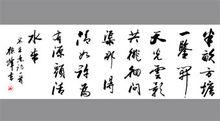 半畝方塘
一鑒開
天光雲影
共徘徊问
渠那得
清如许為
有源頭活
水来